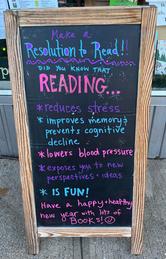 Make a
Resolution to Read!!
DID YOU KNOW THAT
READING...
*reduces stress
* improves memory &
prevents cognitive
decline
*lowers blood pressure
*exposes you to new
perspectives + ideas
* IS FUN!
Have a happy + healthy
new year with lots of
BOOKS! ☺